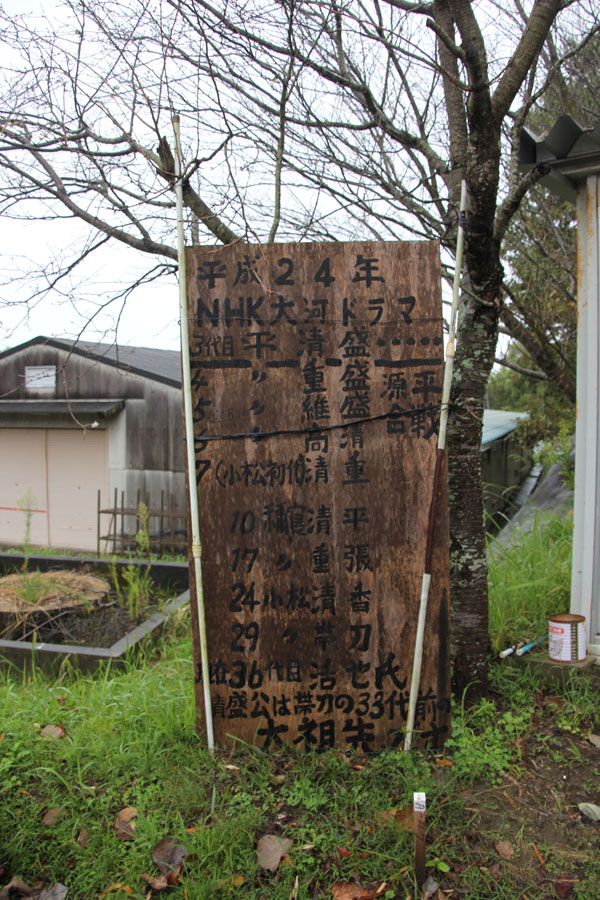 平成24年
NHK大河ドラマ
3代目平清盛……
4 〃 重盛 源平
5 〃 維盛 合戦
6 〃 高清
7(小松初代)清重
10 清平
17 〃 重張
24小松清香
29 帯刀
36代目
清盛公は帯刀の33代前の
大祖先です